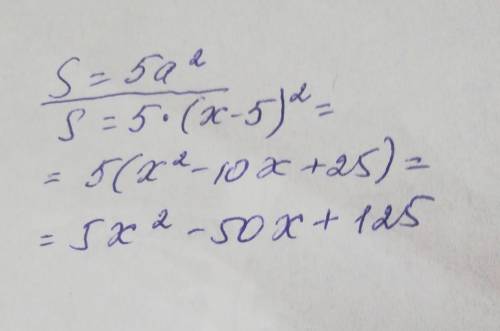 S = 5a²
S = 5·(x-5)² =
= 5(x² - 10x + 25) =
= 5x² - 50x + 125